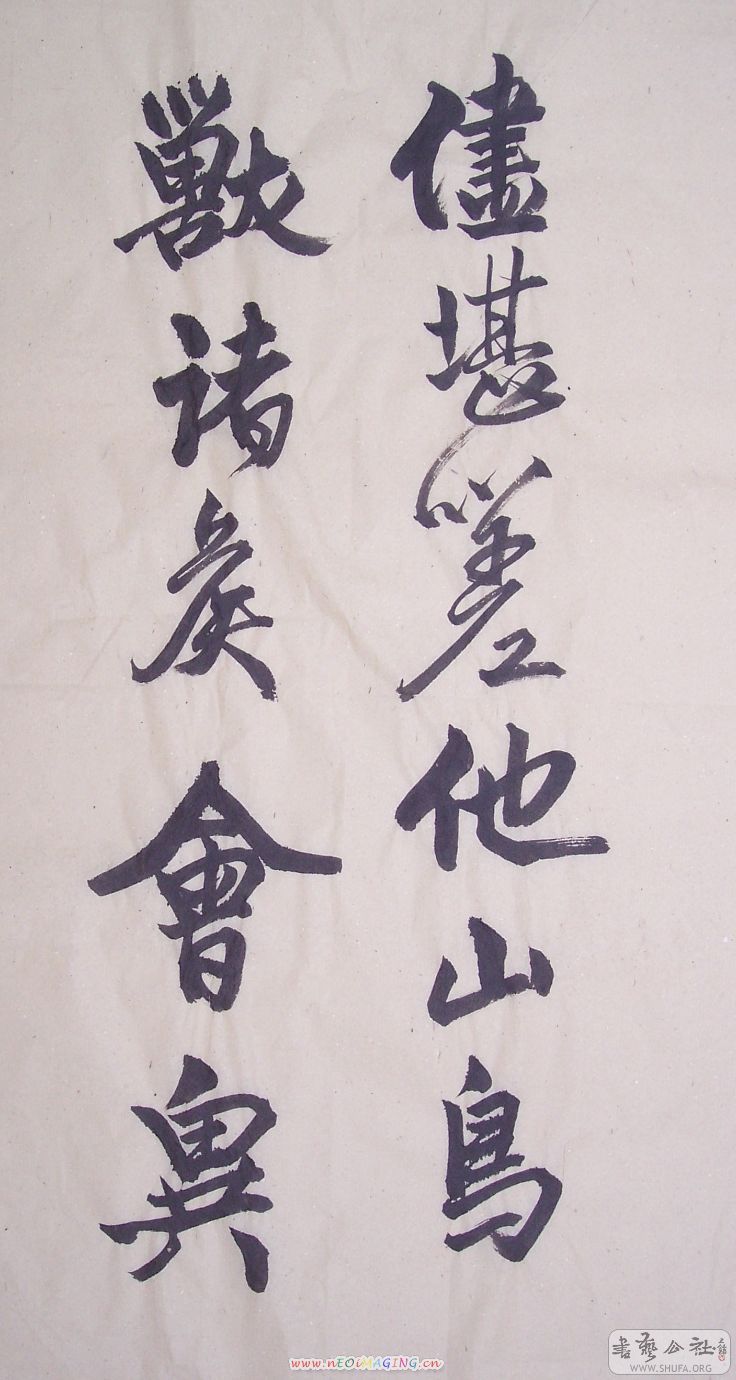 儘堪嗟他山鳥
獸諸矦會異
www.nEOiMAGING.cn
書藝公社
WWW.SHUFA.ORG